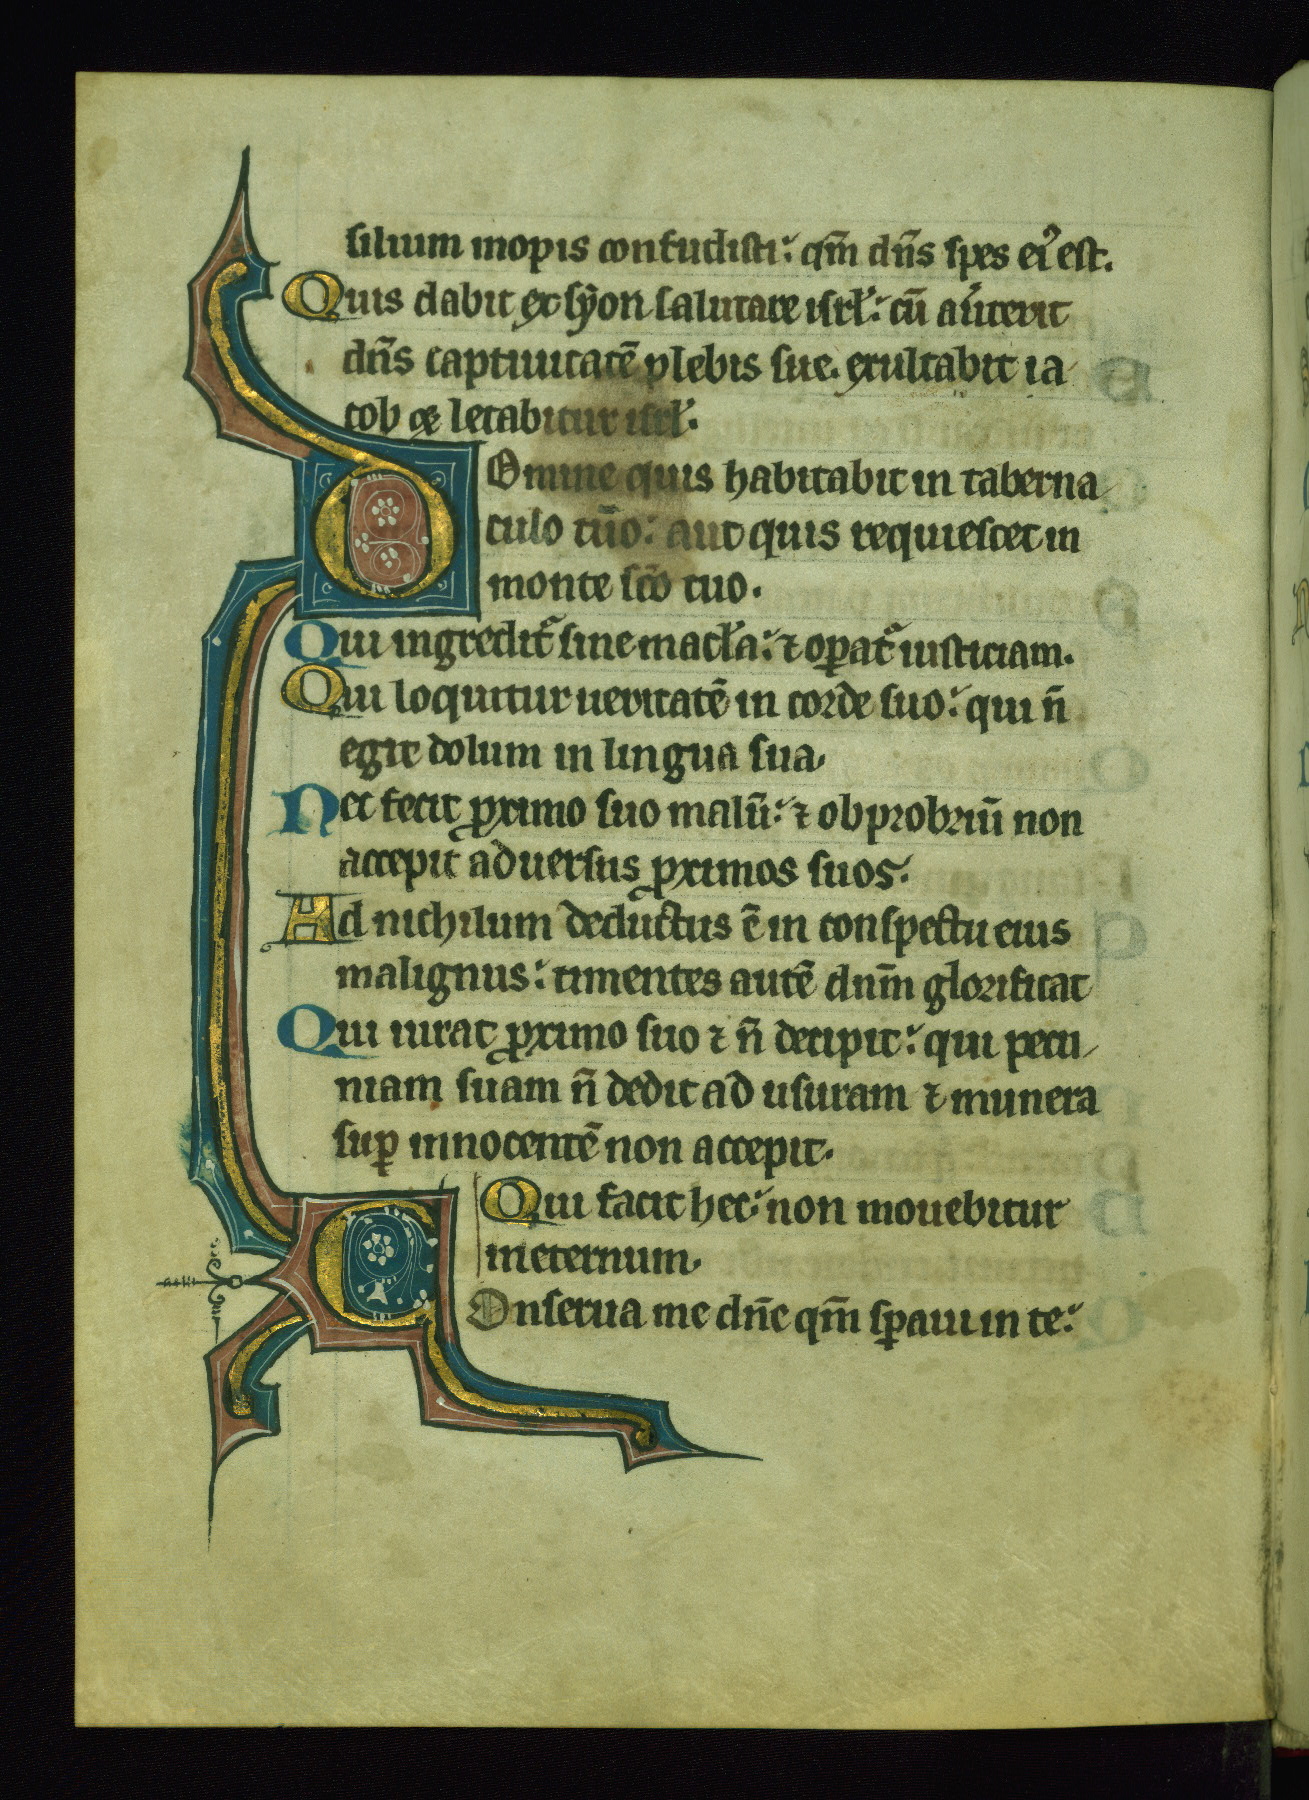 silium inopis confudisti: qm̄ dn̄s spes ei᾿ est.
Quis dabit ex syon salutare isrl̄: cū au᾿terit
dn̄s captiuitatē plebis sue. exultabit ia
cob ⁊ letabitur isrl̄.
Domine quis habitabit in taberna
culo tuo: aut quis requiescet in
monte sc̄o tuo.
Qui ingredit᾿ sine macl̄a: ⁊ oꝑat᾿ iusticiam.
Qui loquitur ueritatē in corde suo: qui n̄
egit dolum in lingua sua.
Nec fecit ꝓximo suo malū: ⁊ obprobriū non
accepit aduersus ꝓximos suos.
Ad nichilum deductus ē in conspectu eius
malignus: timentes autē dnm̄ glorificat
Qui iurat ꝓximo suo ⁊ n̄ decipit: qui pecu
niam suam n̄ dedit ad usuram ⁊ munera
suꝑ innocentē non accepit.
Qui facit hec: non mouebitur
in eternum.
Conserua me dn̄e qm̄ sꝑaui in te: